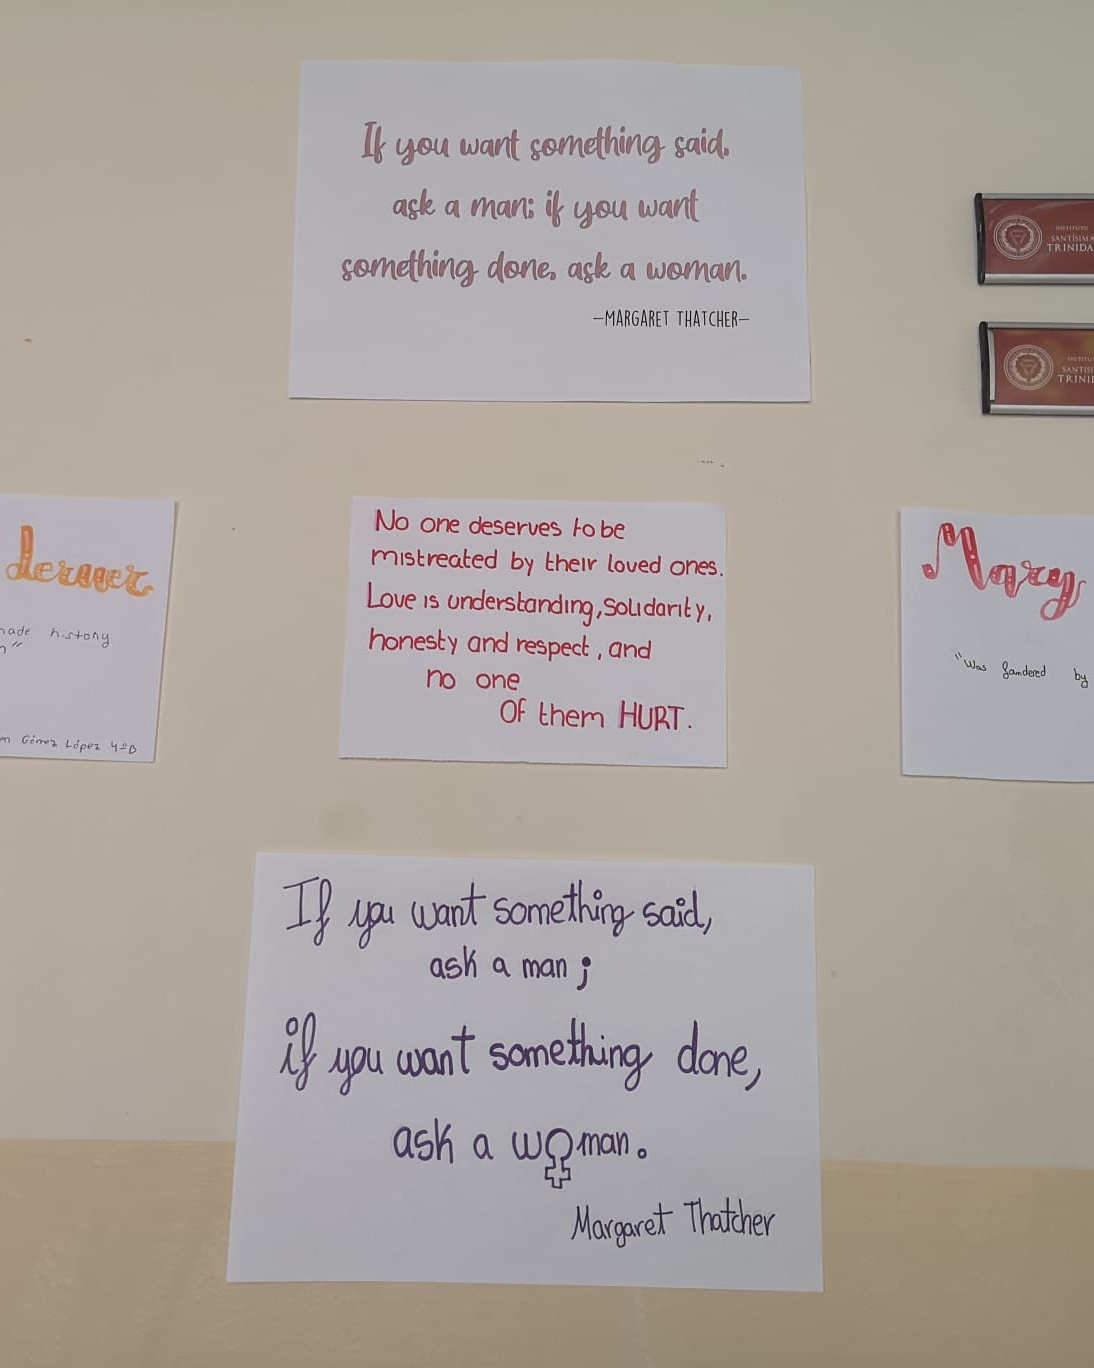 If you want something said,
ask a man; if you want
something done, ask a woman.
—MARGARET THATCHER—
INSTITUTO
SANTÍSIMA
TRINIDA
INSTITU
SANTÍSI
TRINI
lerner
nade history
n"
en Gómez López 4ºB
No one deserves to be
mistreated by their loved ones.
Love is understanding, solidarity,
honesty and respect, and
no one
Of them HURT.
Mary
"Was by
If you want something said,
ask a man;
if you want something done,
ask a woman.
Margaret Thatcher